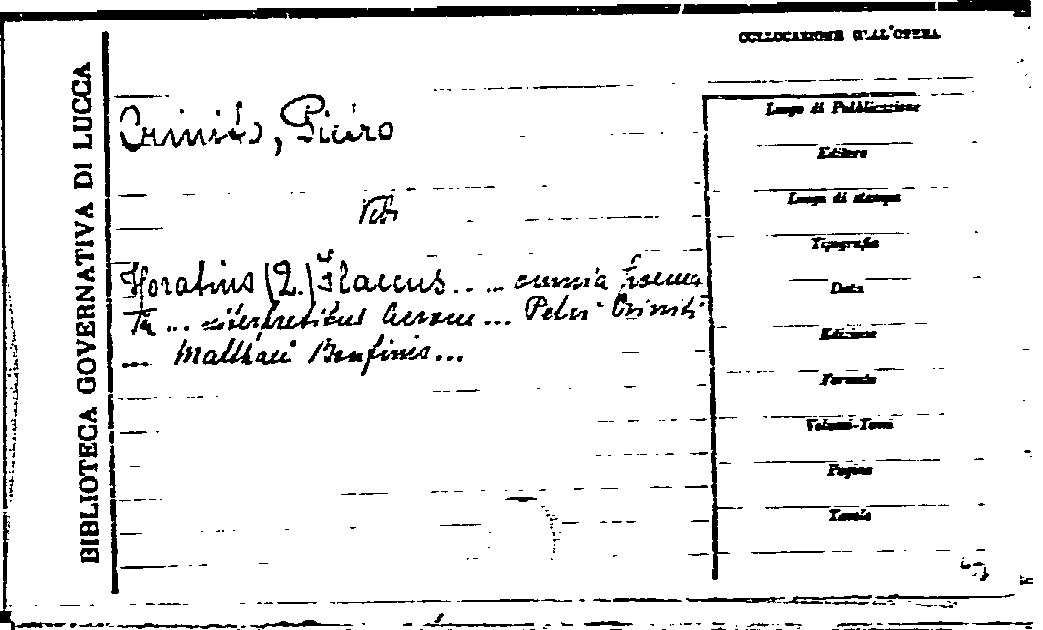 BIBLIOTECA GOVERNATIVA DI LUCCA
COLLOCAZIONE DELL'OPERA
Crinito, Piero
Vedi
Horatius (Q.) Flaccus.. .. omnia poemata
... interpretibus Acrone ... Petri Criniti
... Matthaei Bonfinis...
Luogo di Pubblicazione
Editore
Luogo di stampa
Tipografia
Data
Edizione
Formato
Volumi-Tomi
Pagine
Tavole